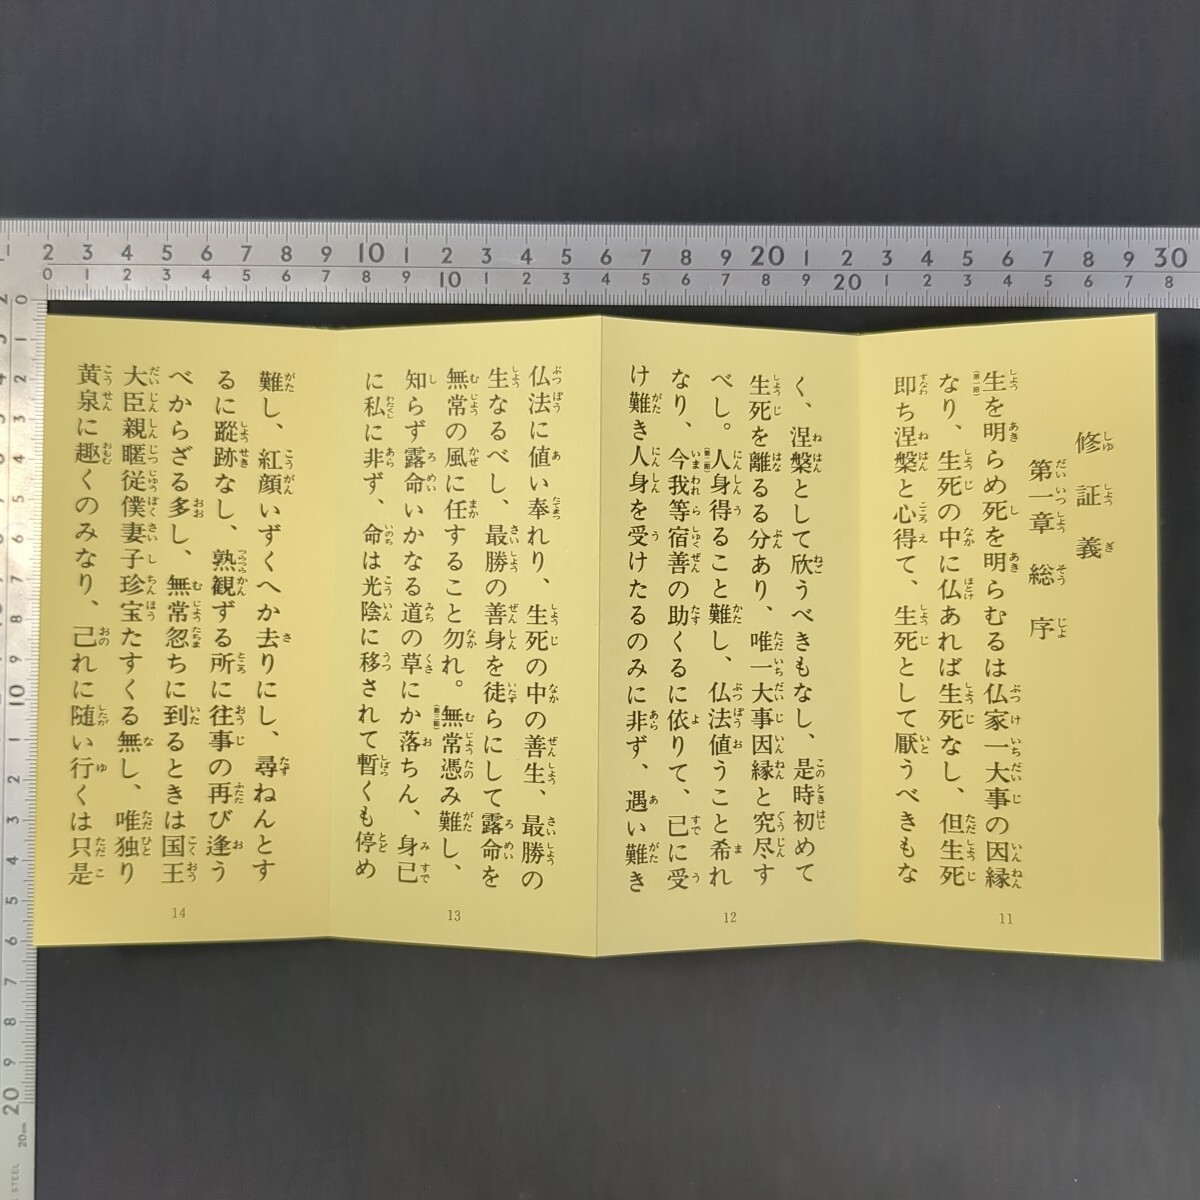 修証義
第一章 総序
生を明らめ死を明らむるは仏家一大事の因縁
なり、生死の中に仏あれば生死なし、但生死
即ち涅槃と心得て、生死として厭うべきもな
11
く、涅槃として欣うべきもなし、是時初めて
生死を離るる分あり、唯一大事因縁と究尽す
べし。人身得ること難し、仏法値うこと希れ
なり、今我等宿善の助くるに依りて、已に受
け難き人身を受けたるのみに非ず、遇い難き
12
仏法に値い奉れり、生死の中の善生、最勝の
生なるべし、最勝の善身を徒らにして露命を
無常の風に任すること勿れ。無常憑み難し、
知らず露命いかなる道の草にか落ちん、身已
に私に非ず、命は光陰に移されて暫くも停め
13
難し、紅顔いずくへか去りにし、尋ねんとす
るに蹤跡なし、熟観ずる所に往事の再び逢う
べからざる多し、無常忽ちに到るときは国王
大臣親暱従僕妻子珍宝たすくる無し、唯独り
黄泉に趣くのみなり、己れに随い行くは只是
14